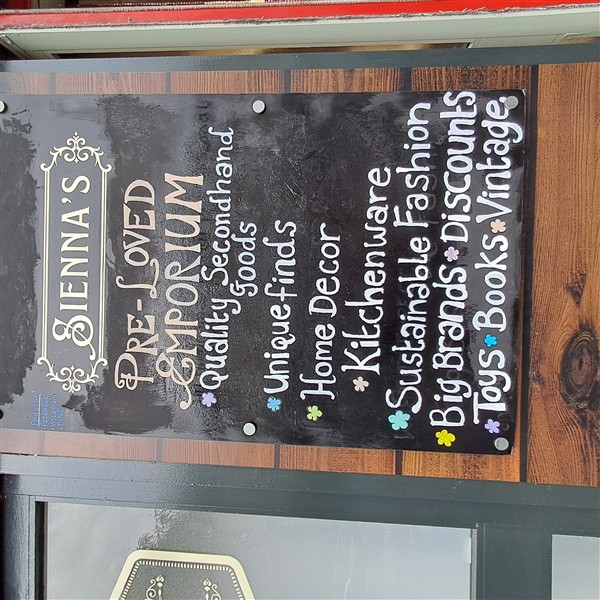 SIENNA'S
PRE-LOVED
EMPORIUM
Quality Secondhand
Goods
Unique finds
Home Decor
Kitchenware
Sustainable Fashion
Big Brands Discounts
Toys Books Vintage